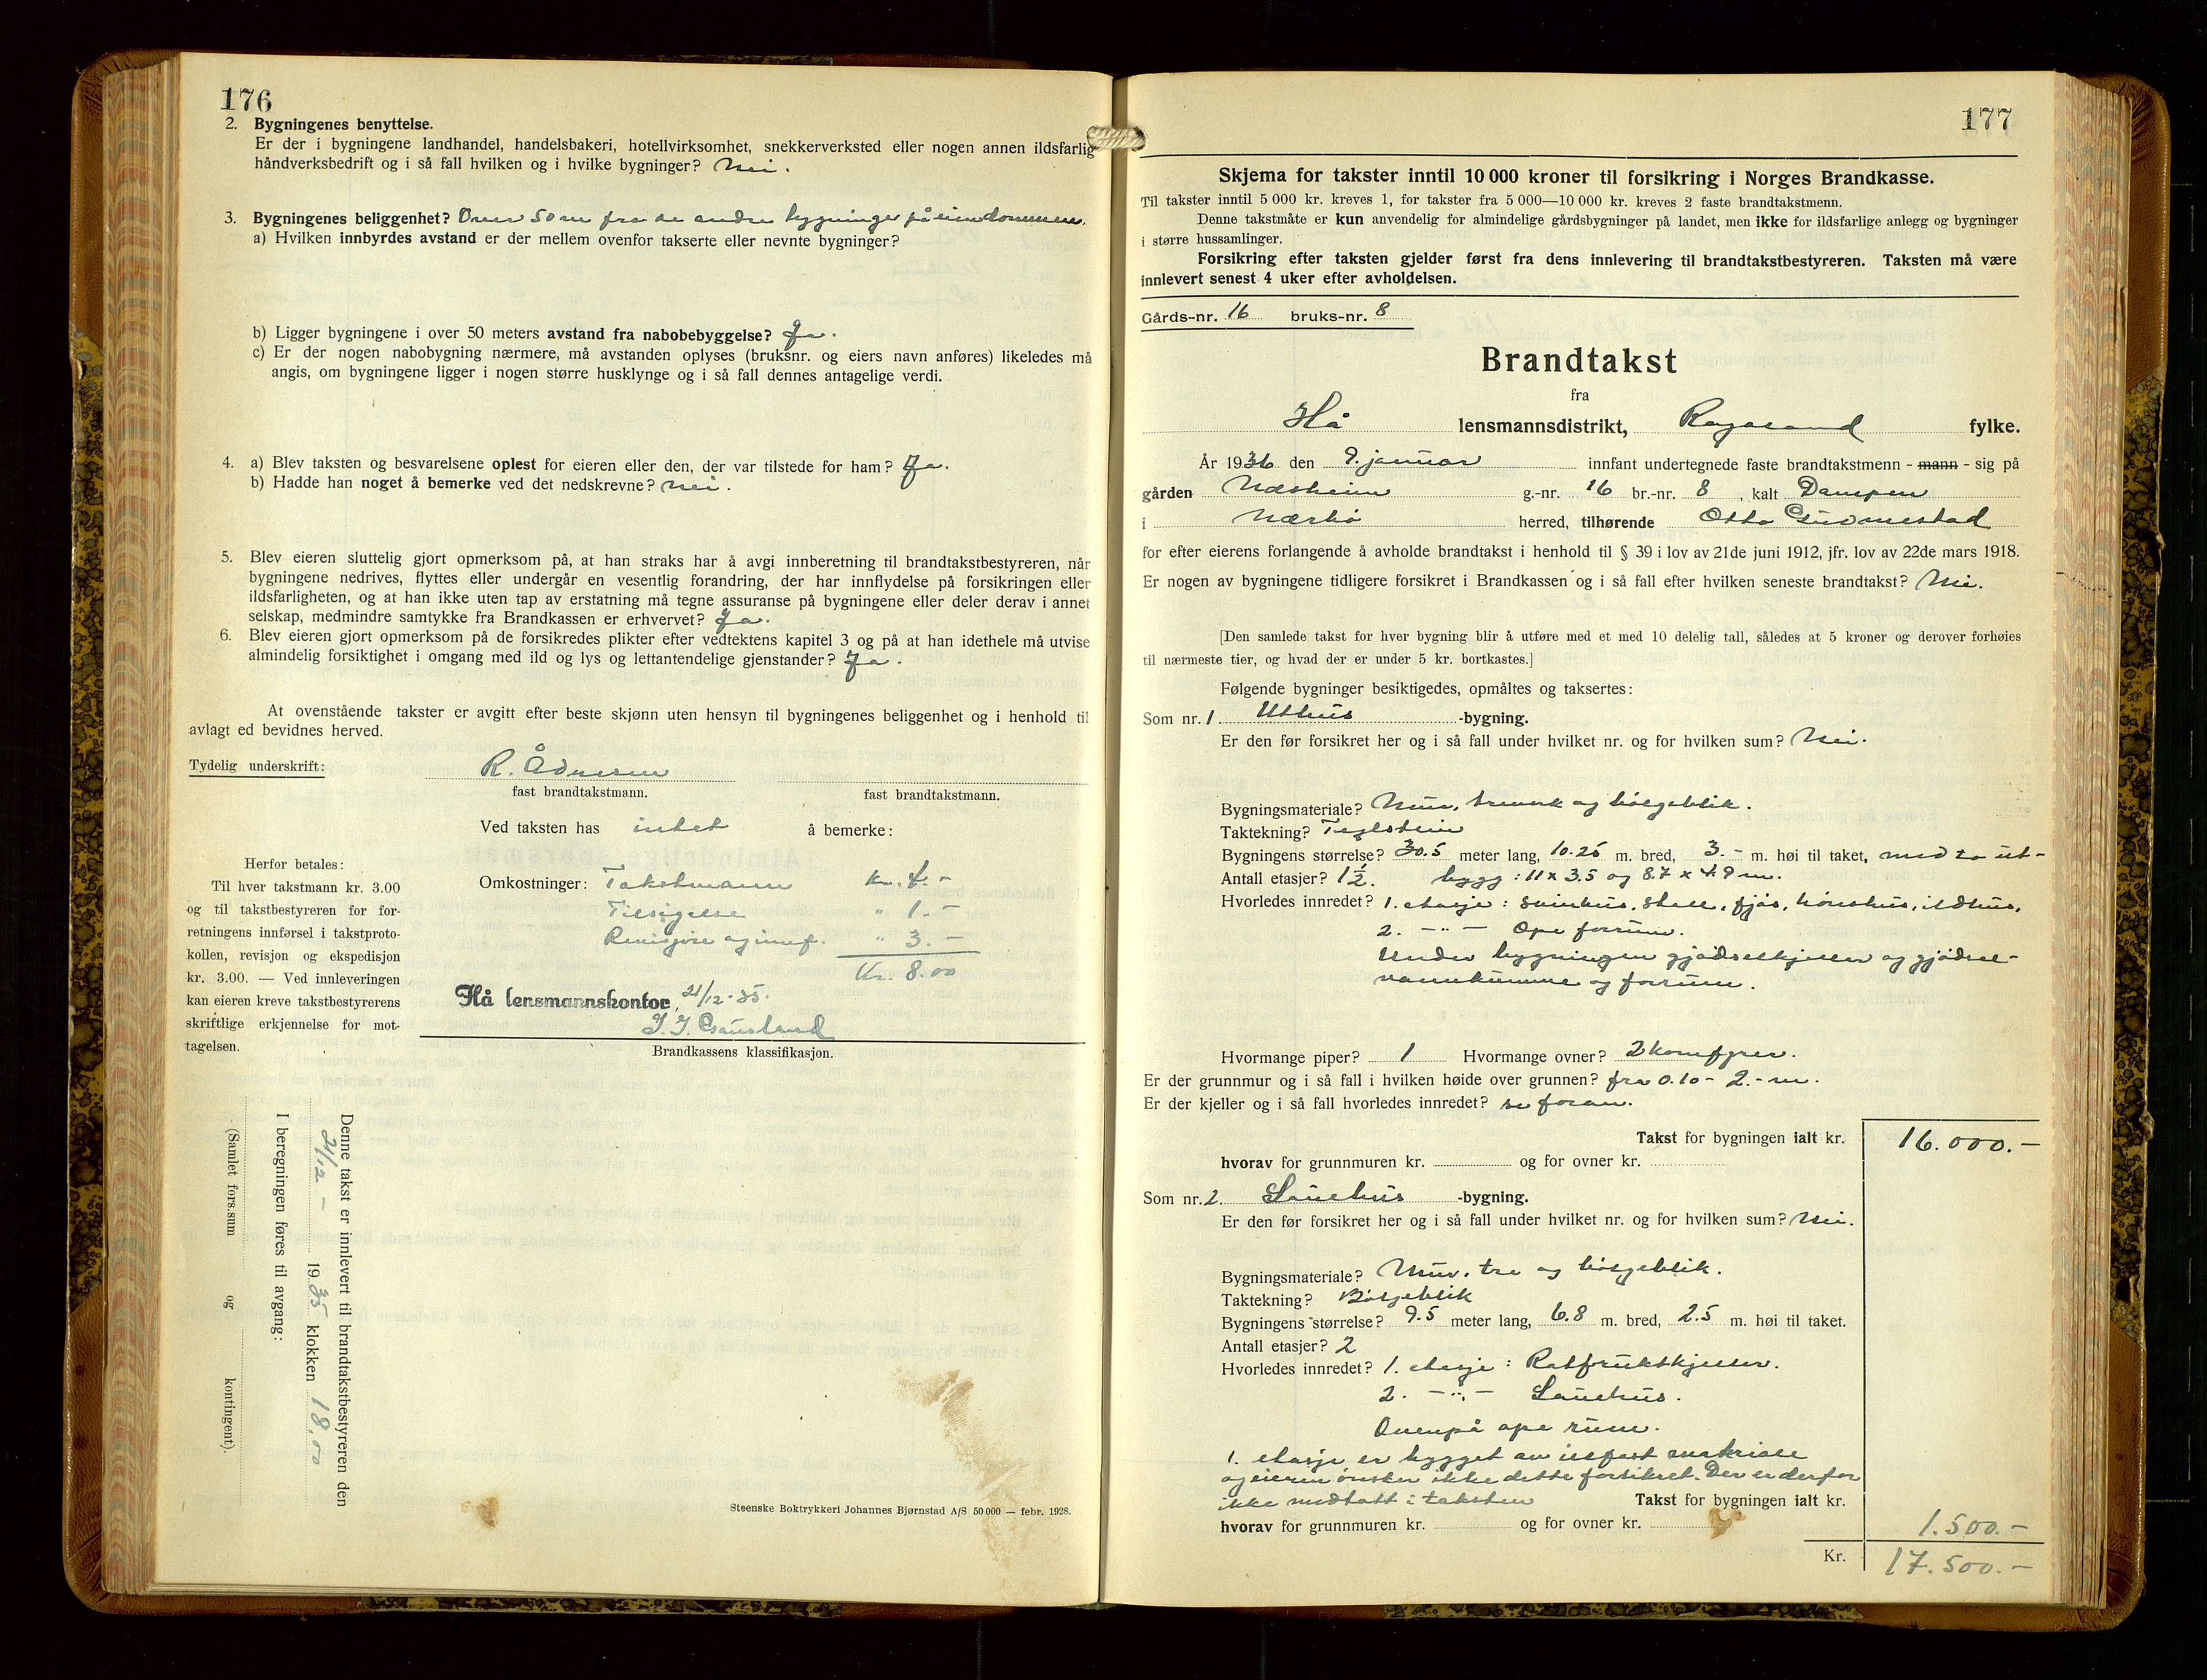 176
2. Bygningenes benyttelse.
Er der i bygningene landhandel, handelsbakeri, hotellvirksomhet, snekkerverksted eller nogen annen ildsfarlig
håndverksbedrift og i så fall hvilken og i hvilke bygninger? Nei.
3. Bygningenes beliggenhet? Over 50 m fra de andre bygninger på eiendommen.
a) Hvilken innbyrdes avstand er der mellem ovenfor takserte eller nevnte bygninger?
b) Ligger bygningene i over 50 meters avstand fra nabobebyggelse? Ja.
c) Er der nogen nabobygning nærmere, må avstanden oplyses (bruksnr. og eiers navn anføres) likeledes må
angis, om bygningene ligger i nogen større husklynge og i så fall dennes antagelige verdi.
4. a) Blev taksten og besvarelsene oplest for eieren eller den, der var tilstede for ham? Ja.
b) Hadde han noget å bemerke ved det nedskrevne? Nei.
5. Blev eieren sluttelig gjort opmerksom på, at han straks har å avgi innberetning til brandtakstbestyreren, når
bygningene nedrives, flyttes eller undergår en vesentlig forandring, der har innflydelse på forsikringen eller
ildsfarligheten, og at han ikke uten tap av erstatning må tegne assuranse på bygningene eller deler derav i annet
selskap, medmindre samtykke fra Brandkassen er erhvervet? Ja.
6. Blev eieren gjort opmerksom på de forsikredes plikter efter vedtektens kapitel 3 og på at han idethele må utvise
almindelig forsiktighet i omgang med ild og lys og lettantendelige gjenstander? Ja.
At ovenstående takster er avgitt efter beste skjønn uten hensyn til bygningenes beliggenhet og i henhold til
avlagt ed bevidnes herved.
Tydelig underskrift: R. Ådnesen
fast brandtakstmann. fast brandtakstmann.
Ved taksten has intet å bemerke:
Omkostninger: Takstmann kr. 4.-
Tilsigelse " 1.-
Revisjon og innf. " 3.-
Kr. 8.00
Hå lensmannskontor, 21/12-35.
Brandkassens klassifikasjon.
Herfor betales:
Til hver takstmann kr. 3.00
og til takstbestyreren for for-
retningens innførsel i takstproto-
kollen, revisjon og ekspedisjon
kr. 3.00. — Ved innleveringen
kan eieren kreve takstbestyrerens
skriftlige erkjennelse for mot-
tagelsen.
Denne takst er innlevert til brandtakstbestyreren den
21/12 - 1935 klokken 18.00
I beregningen føres til avgang:
(Samlet fors.sum og kontingent).
Steenske Boktrykkeri Johannes Bjørnstad A/S 50 000 — febr. 1928.
177
Skjema for takster inntil 10 000 kroner til forsikring i Norges Brandkasse.
Til takster inntil 5 000 kr. kreves 1, for takster fra 5 000—10 000 kr. kreves 2 faste brandtakstmenn.
Denne takstmåte er kun anvendelig for almindelige gårdsbygninger på landet, men ikke for ildsfarlige anlegg og bygninger
i større hussamlinger.
Forsikring efter taksten gjelder først fra dens innlevering til brandtakstbestyreren. Taksten må være
innlevert senest 4 uker efter avholdelsen.
Gårds-nr. 16 bruks-nr. 8
Brandtakst
fra
Hå lensmannsdistrikt, Rogaland fylke.
År 1936 den 9. januar innfant undertegnede faste brandtakstmenn - mann - sig på
gården Næsheim g.-nr. 16 br.-nr. 8, kalt Dampen
i Nærbø herred, tilhørende Otto Gudmestad
for efter eierens forlangende å avholde brandtakst i henhold til § 39 i lov av 21de juni 1912, jfr. lov av 22de mars 1918.
Er nogen av bygningene tidligere forsikret i Brandkassen og i så fall efter hvilken seneste brandtakst? Nei.
[Den samlede takst for hver bygning blir å utføre med et med 10 delelig tall, således at 5 kroner og derover forhøies
til nærmeste tier, og hvad der er under 5 kr. bortkastes.]
Følgende bygninger besiktigedes, opmåltes og taksertes:
Som nr. 1 Uthus -bygning.
Er den før forsikret her og i så fall under hvilket nr. og for hvilken sum? Nei.
Bygningsmateriale? Mur, treverk og bølgeblik.
Taktekning? Teglstein
Bygningens størrelse? 30.5 meter lang, 10.25 m. bred, 3.- m. høi til taket, med to ut-
Antall etasjer? 1½. bygg: 11 x 3.5 og 8.7 x 4.9 m.
Hvorledes innredet? 1. etasje: svinhus, stall, fjøs, hønshus, ildhus,
2. -"- Ope forrum.
Under bygningen gjødselkjeller og gjødsel-
vannkumme og forrum.
Hvormange piper? 1 Hvormange ovner? 2 komfyrer.
Er der grunnmur og i så fall i hvilken høide over grunnen? fra 0.10 - 2.- m.
Er der kjeller og i så fall hvorledes innredet? se foran.
Takst for bygningen ialt kr. 16.000.-
hvorav for grunnmuren kr. og for ovner kr.
Som nr. 2. Lauehus -bygning.
Er den før forsikret her og i så fall under hvilket nr. og for hvilken sum? Nei.
Bygningsmateriale? Mur, tre og bølgeblik.
Taktekning? Bølgeblik
Bygningens størrelse? 9.5 meter lang, 6.8 m. bred, 2.5 m. høi til taket.
Antall etasjer? 2
Hvorledes innredet? 1. etasje: Rotfruktkjeller.
2. -"- Lauehus.
Ovenpå ope rum.
1. etasje er bygget av ildfast materiale
og eieren ønsker ikke dette forsikret. Der er derfor
ikke medtatt i taksten Takst for bygningen ialt kr.
hvorav for grunnmuren kr. og for ovner kr. 1.500.-
Kr. 17.500.-